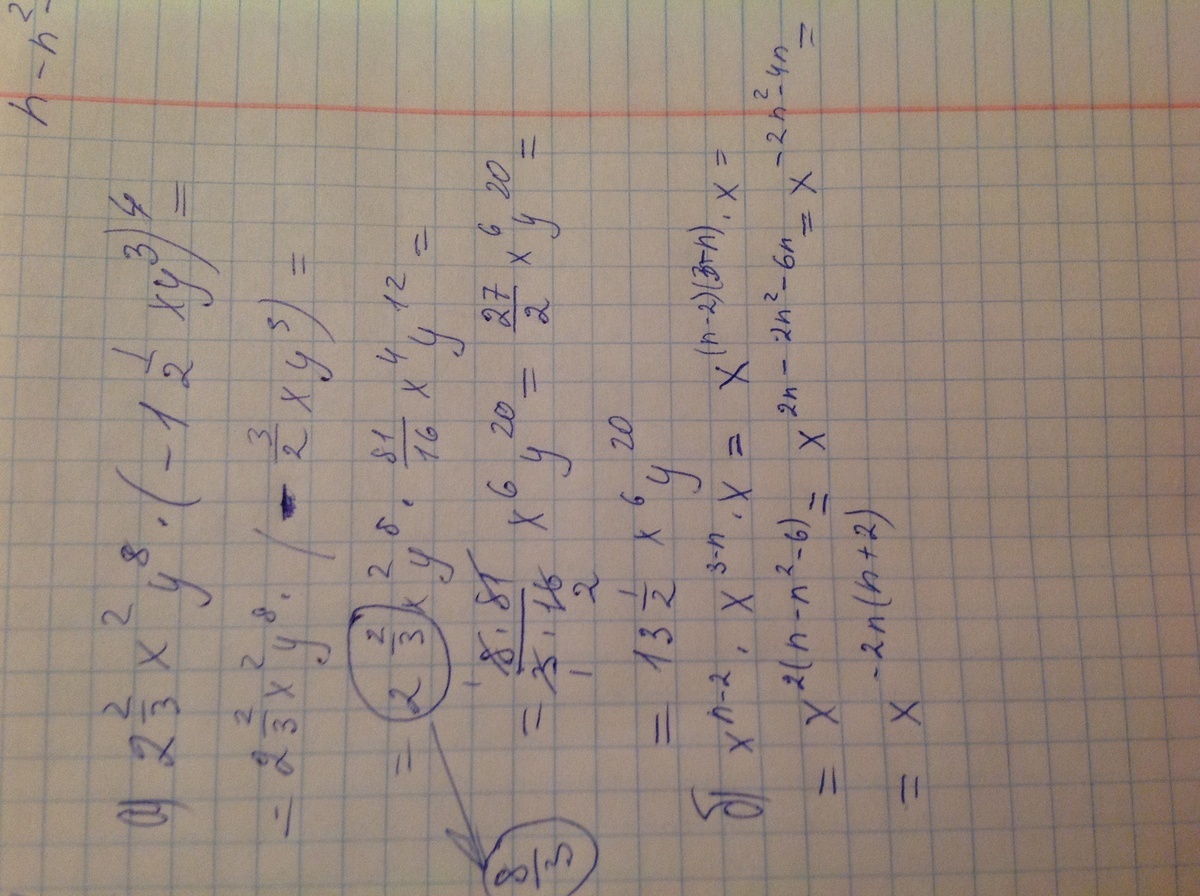 n − n²
а) 2 2/3 x² y⁸ · (−1 1/2 xy³)⁴ =
= 2 2/3 x² y⁸ · (− 3/2 xy³) =
= 2 2/3 x² y⁸ · 81/16 x⁴ y¹² =
8/3
= 8·81/3·16 x⁶ y²⁰ = 27/2 x⁶ y²⁰ =
1 1 2
= 13 1/2 x⁶ y²⁰
б) xⁿ⁻² · x³⁻ⁿ · x = x⁽ⁿ⁻²⁾⁽³⁺ⁿ⁾ · x =
= x^2(n−n²−6) = x^2n−2n²−6n = x^−2n²−4n =
= x^−2n(n+2)